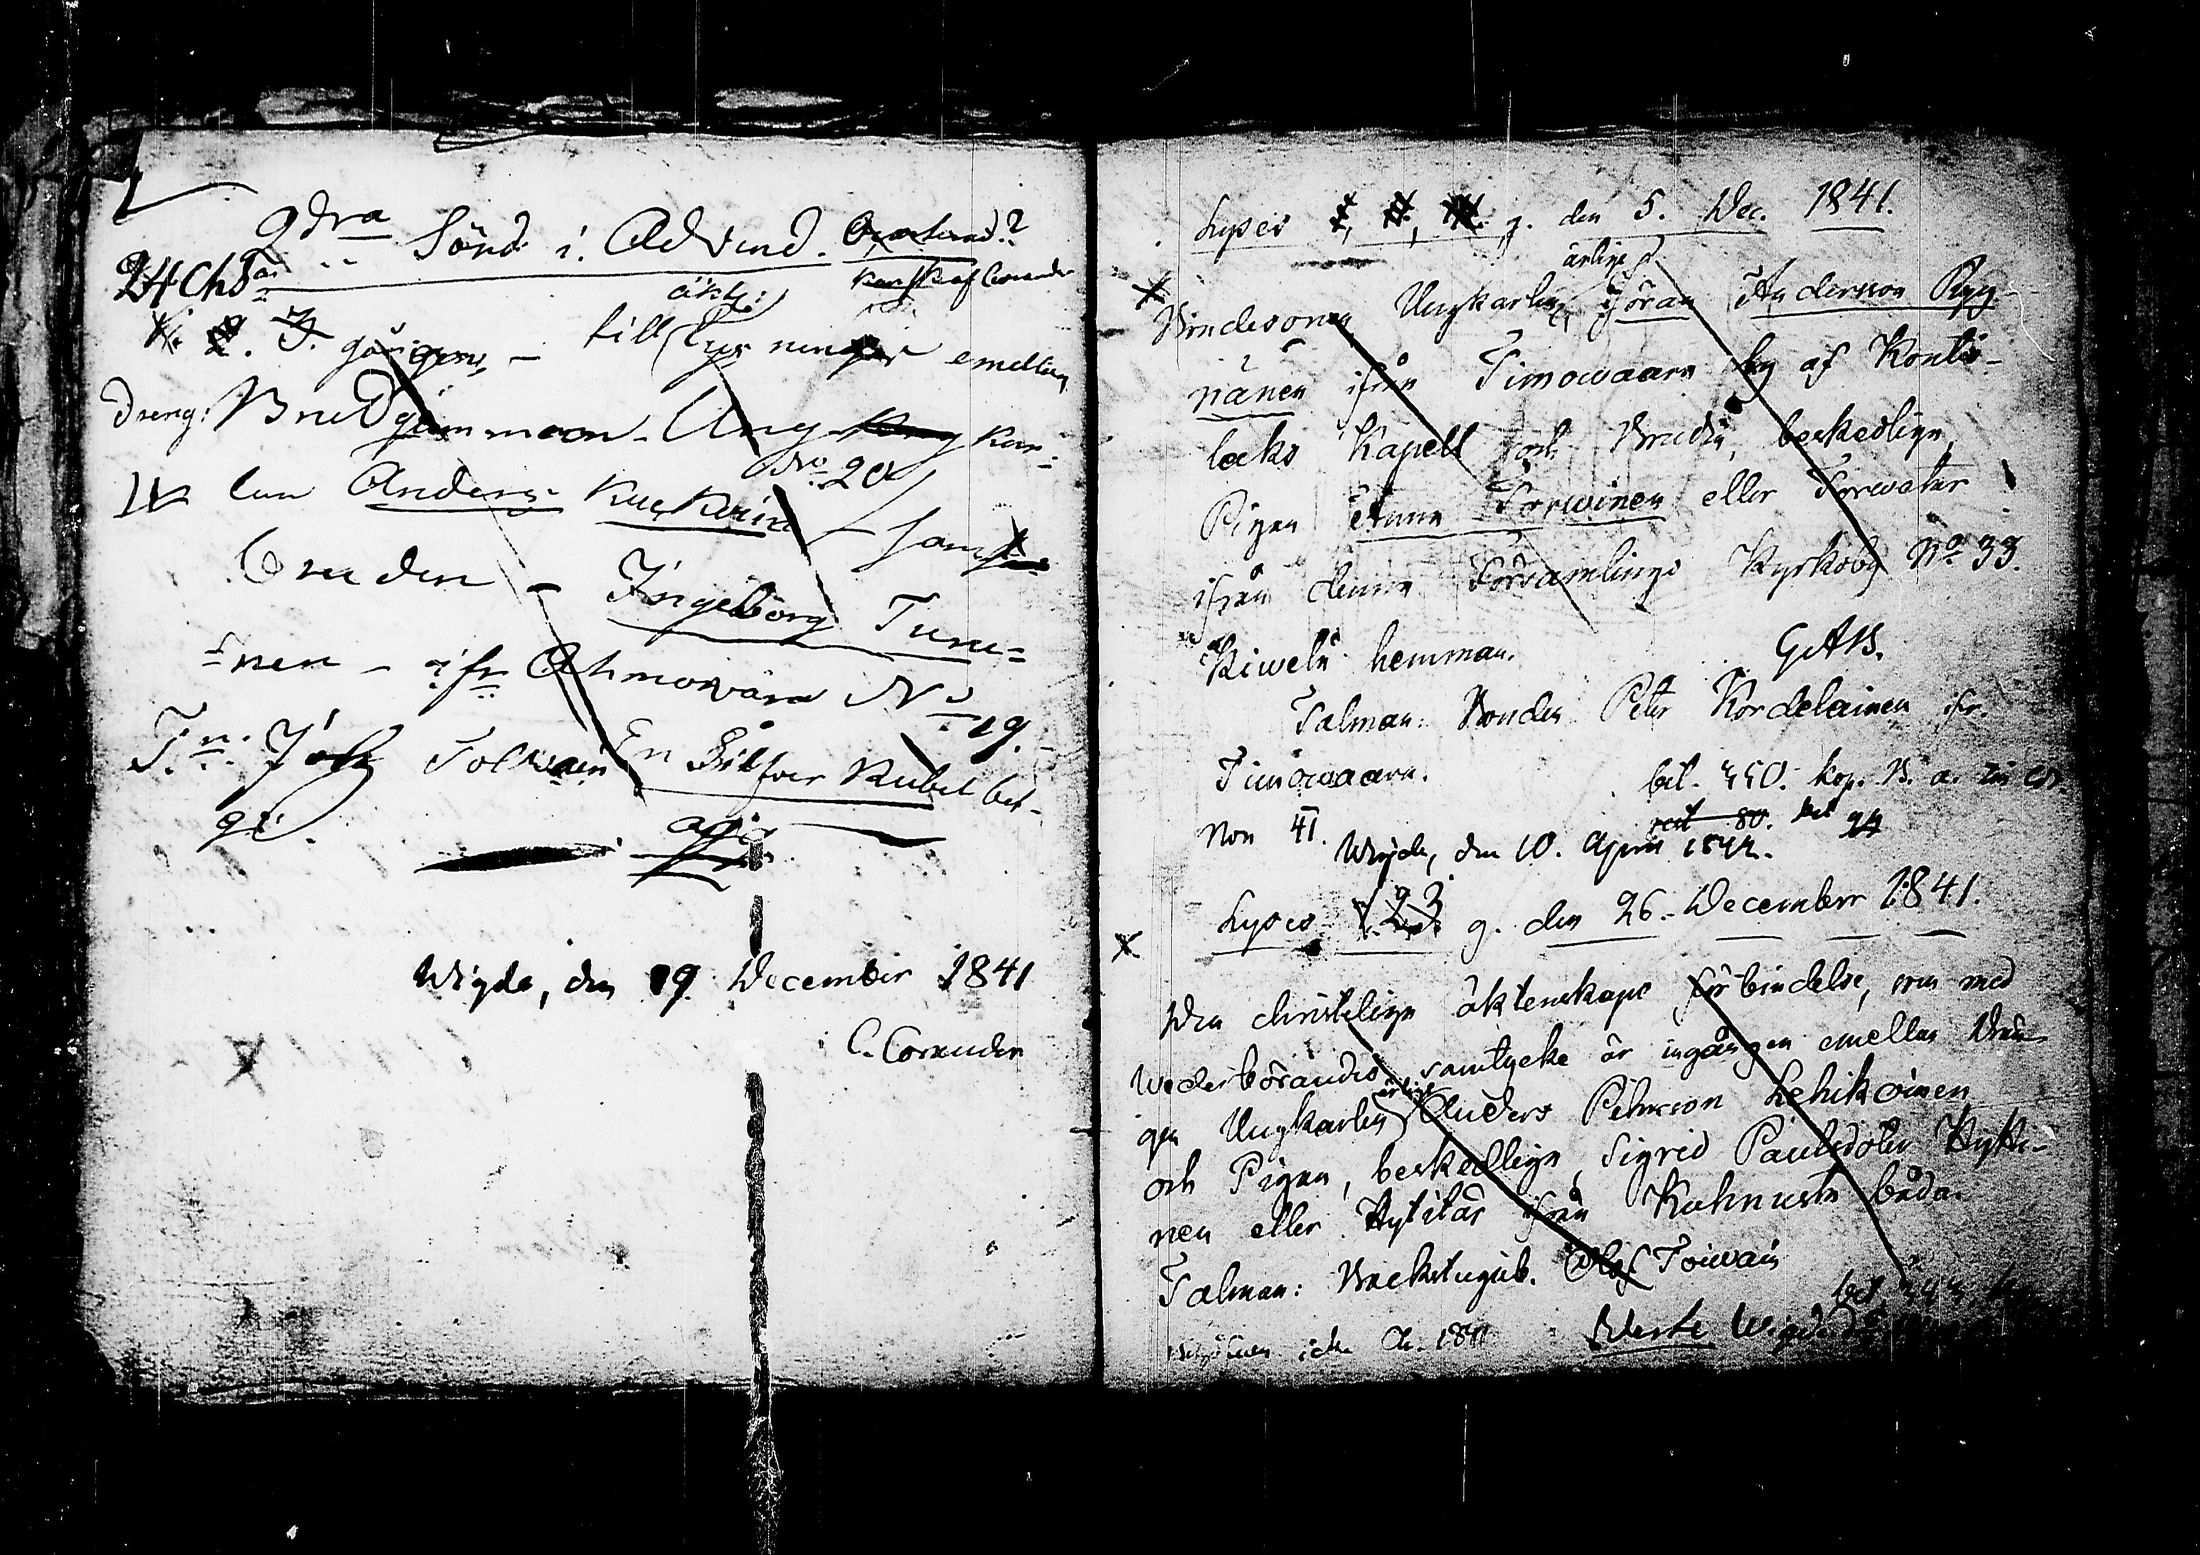 2dra Sönd. i. Advend.
1. 2. 3. gången, – till äkt: lysningar emellan
dreng: Brudgummaan – Ung kar-
lan Anders Kuckkoin No 20 – samt
bruden – Ingeborg Turu=
=nen – ifr Ahmovara No 19.
T.n: Joh Tolwain En Silfver Rubel bet-
Wigde, den 19 December 1841
C. Corander
Lyses 1, II, III. g. den 5. Dec. 1841.
Bondesonen Ungkarlen, ärlige Göran Andersson Ryy-
nänen ifrån Timowaara by af Kontio-
laks Kapell och Bruden, beskedliga,
Pigan Anna Torwinen eller Torwatar
ifrån denna Församlings Kyrkoby No 33.
Kiwelä hemman. GAB.
Talman: Bonden Peter Kordelainen ifr.
Timowaara. bet. 350. kop. B. a.
Non 41. rest 80.
Wigde, den 10. April 1842.
Lyses 1. 2. 3 g. den 26. December 1841.
Den christeliga äktenskaps förbindelse, som med
wederbörandes samtycke är ingången emellan Drän-
gen Ungkarlen ärlige Anders Pehrsson Lehikoinen
och Pigan, beskedliga, Sigrid Paulsdoter Hytti-
nen eller Hytitär ifrån Kuhnusta båda.
Talman: Backstugub. Olof Toiwain
1841 Werte Wigde